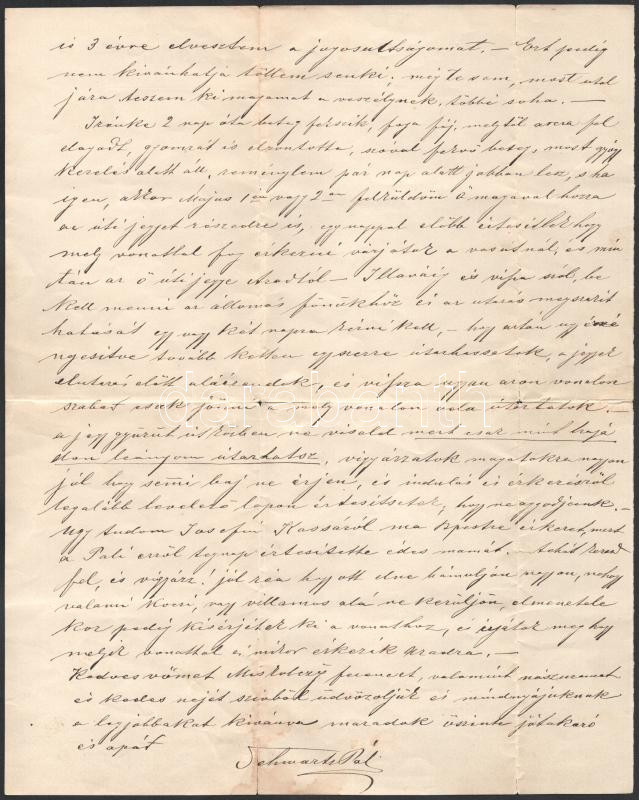 is 3 évre elvesztem a jogosultságomat. — Ezt pedig
nem kivánhatja tőllem senki. még te sem, most utol
jára teszem ki magamat a veszélynek, többé soha. —
Irénke 2 nap óta beteg fekszik, foga fáj, melytől arcza fel
dagadt, gyomrát is elrontotta, szóval fekvő beteg, most gyógy
kezelés alatt áll, reménylem pár nap alatt jobban lesz, s ha
igen, akkor Május 1én vagy 2án felküldöm Ő magával hozza
az úti jegyet részedre is, egy nappal előbb értesitlek hogy
mely vonattal fog érkezni várjátok a vasútnál, és miu
tán az ő úti jegye Aradtól — Illaváig és vissza szól, be
kell menni az állomás főnökhöz és az utazás megszakit
hatását egy vagy két napra kérni kell, — hogy aztán
ngesitve tovább ketten egyszerre utazhassatok, a jegyek
elutazás előtt aláirandók, és vissza ugyan azon vonalon
szabad csak jönni a mely vonalon oda utaztatok. —
a jegy gyürüt útközben ne viseld mert csak mint hajá
don leányom útazhatsz, vigyázzatok magatokra nagyon
jól hogy semmi baj ne érjen, és indulás és érkezésről
legalább levelező lapon értesitsetek, hogy ne aggodjunk. —
Ugy tudom Josefin Kassáról ma Bpestre érkezet, mert
a Pali erről tegnap értesitette édes mamát. tehát keresd
fel, és vigyázz! jól réa hogy ott elne bámuljon nagyon, nehogy
valami kocsi, vagy villamos alá ne kerüljön, elmenetele
kor pedig kisérjétek ki a vonathoz, és irjátok meg hogy
melyik vonattal és mikor érkezik Aradra. —
Kedves vőmet Miskolczy Ferenczet, valamint nászuramat
és kedves nejét szivből üdvözöljük és mindnyájuknak
a legjobbakat kivánva maradok őszinte jóakaró
és apát
Schwartz Pál
darabanth